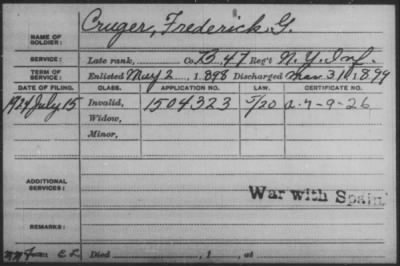 Cruger, Frederick G.
NAME OF SOLDIER:
SERVICE: Late rank, Co. B, 47 Reg't N. Y. Inf.
TERM OF SERVICE: Enlisted May 2, 1898 Discharged Mar. 31, 1899
DATE OF FILING. CLASS. APPLICATION NO. LAW. CERTIFICATE NO.
1924 July 15 Invalid, 1504323 5/20 a-7-9-26
Widow,
Minor,
ADDITIONAL SERVICES: War with Spain
REMARKS:
Died , 1 , at